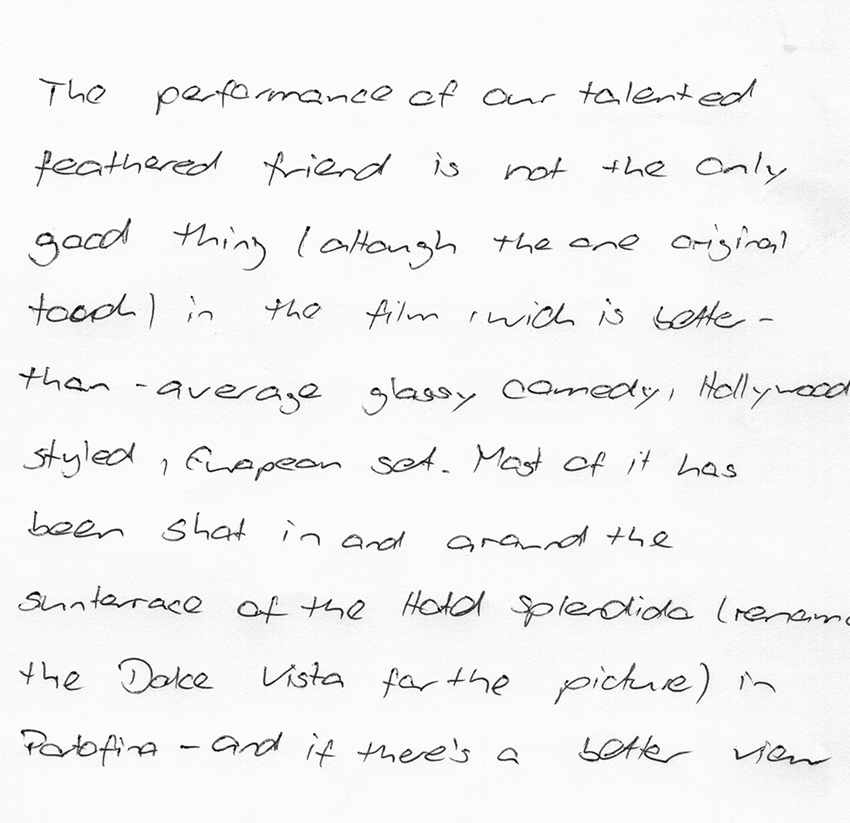 The performance of our talented
feathered friend is not the only
good thing (altough the one original
toooh) in the film , wich is better-
than-average glossy comedy, Hollywood
styled, European set. Most of it has
been shot in and around the
sunterrace of the Hotel Splendido (renam
the Dolce Vista for the picture) in
Portofino - and if there's a better view